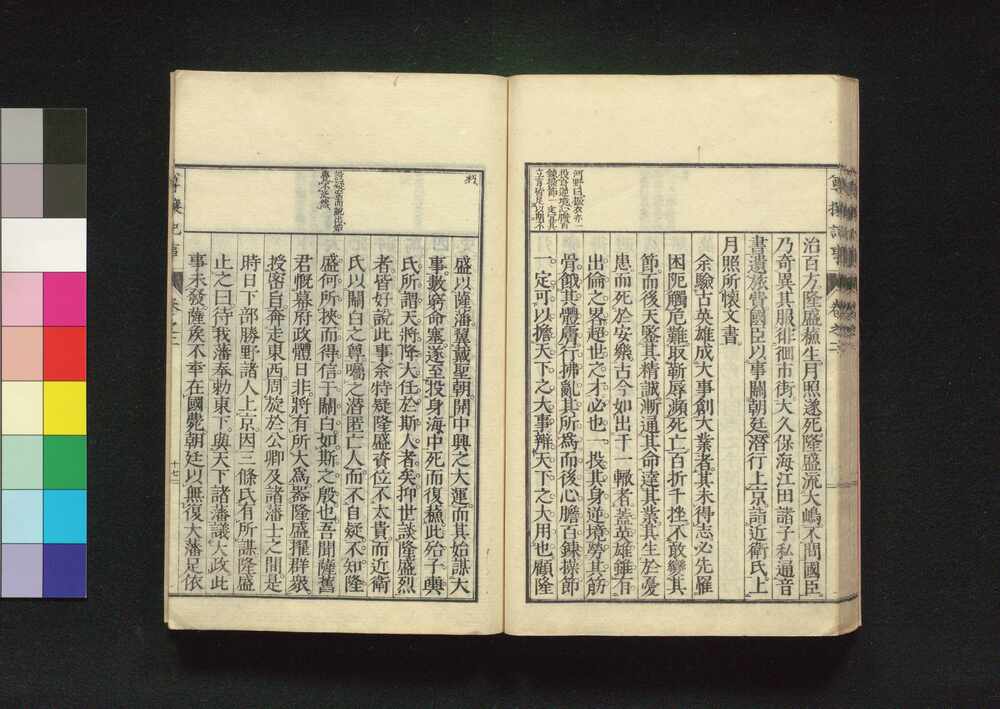 河野曰披衣亦一
投身逆境心膽百
鍊操節一定實其
立言皆足以明不
治百方隆盛穌生月照遂死隆盛流大嶋不問國臣
乃奇異其服徘徊市街大久保海江田諸子私通音
書遺旅費國臣以事關朝廷潛行上京詣近衛氏上
月照所懷文書
余驗古英雄成大事創大業者其未得志必先罹
困阨觸危難取斬辱瀕死亡百折千挫不敢變其
節而後天鑒其精誠漸通其命達其業其生於憂
患而死於安樂古今如出于一轍者蓋英雄雖有
出倫之畧超世之才必也一投其身逆境勞其筋
骨餓其體膚行拂亂其所為而後心膽百鍊操節
一定可以擔天下之大事辯天下之大用也顧隆
尊攘記事
卷之二
盛以薩藩翼戴聖朝開中興之大運而其始謀大
事數窮命塞遂至投身海中死而復穌此殆子輿
氏所謂天將降大任於斯人者矣抑世談隆盛烈
者皆好說此事余特疑隆盛資位不太貴而近衛
氏以關白之尊囑之潛匿亡人而不自疑不知隆
盛何所挾而得信于關白如斯之殷也吾聞薩舊
君慨幕府政體日非將有所大為器隆盛擢群衆
授密旨奔走東西周旋於公卿及諸藩士之間是
時日下部勝野諸人上京因三條氏有所謀隆盛
止之曰待我藩奉勅東下與天下諸藩議大政此
事未發薩矦不幸在國薨朝廷以無復大藩足依
尊攘記事
卷之二
十七